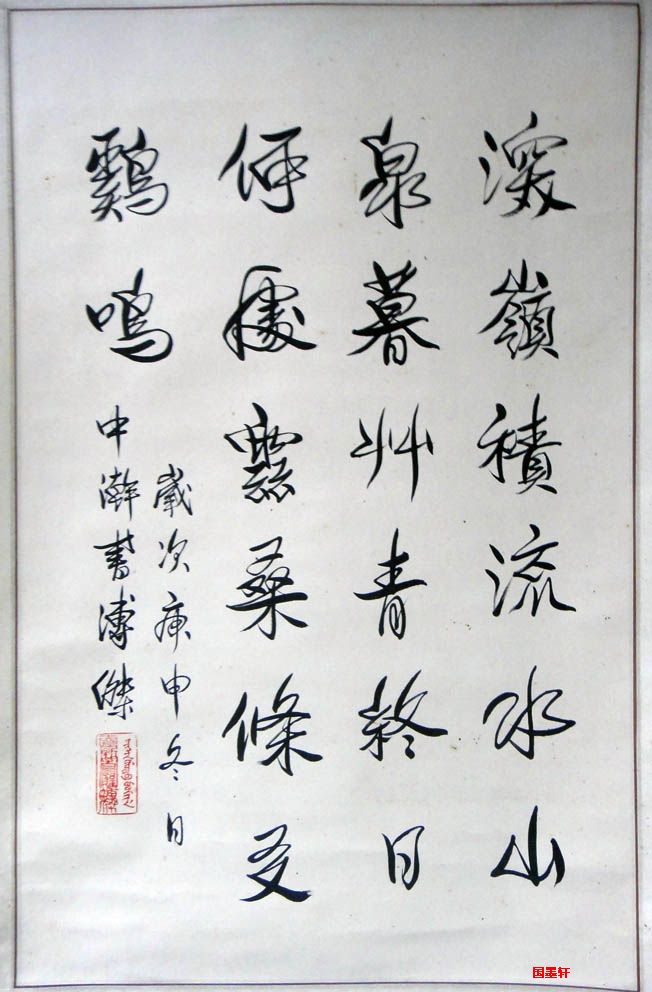 深嶺積流水山
泉暮艸青終日
何處桑條又
鷄鳴
歲次庚申冬日
中澣書溥傑
国墨轩